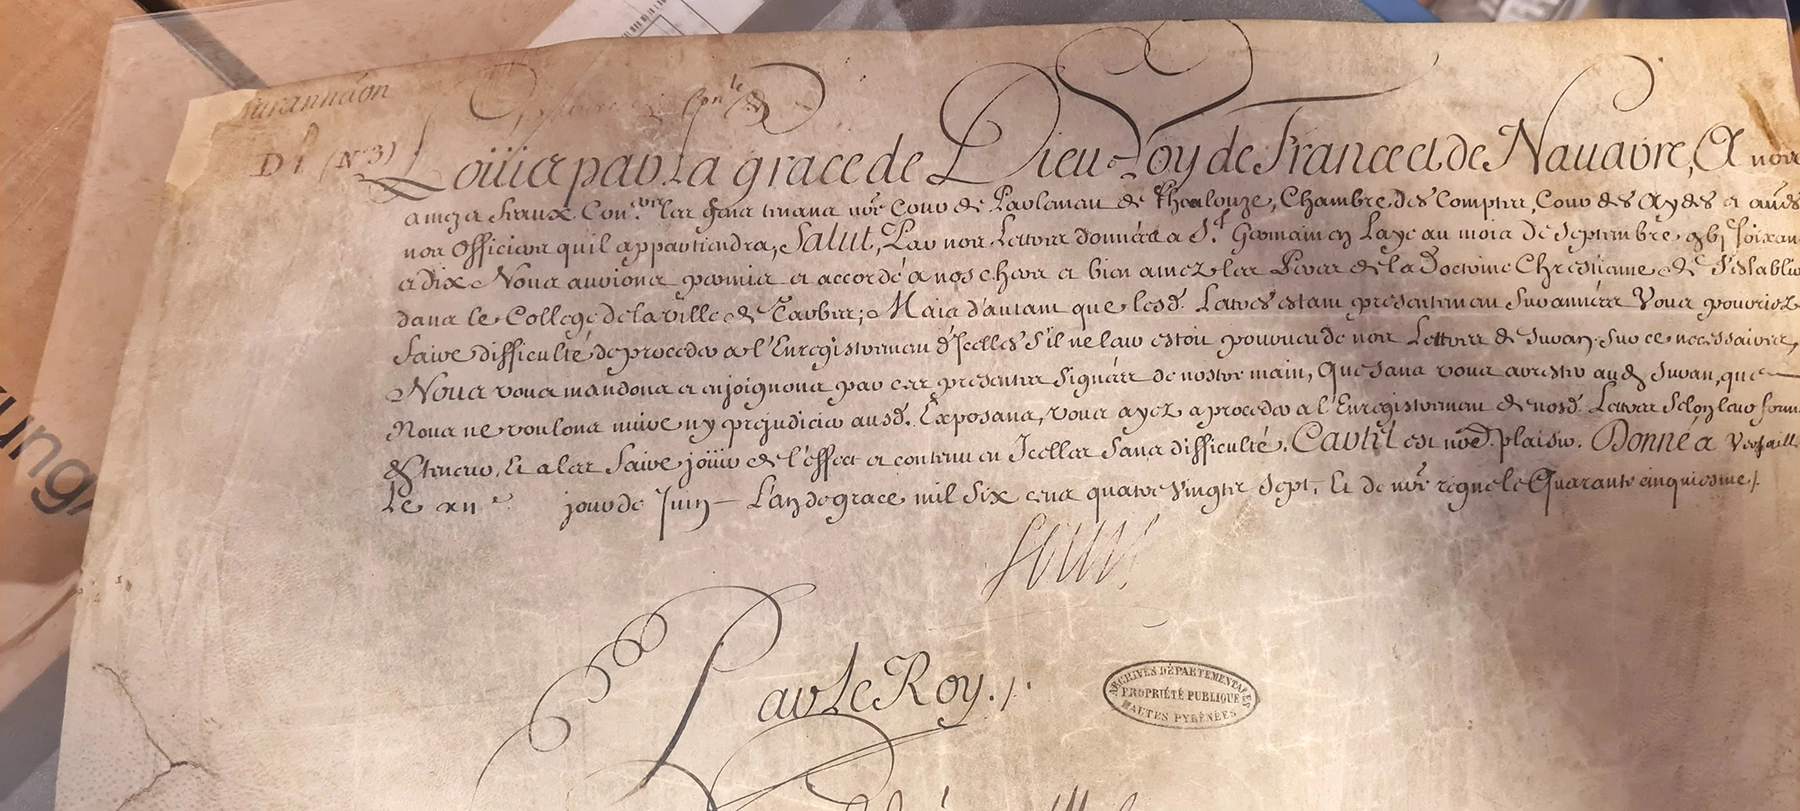 Surannaôn
D1 (N° 3)
Louis par la grace de Dieu Roy de France et de Nauarre, A nos
amez et feaux Con.ers les gens tenans nre Cour de Parlement de Thoulouze, Chambre des Comptes, Cour des Aydes et au.es
nos Officiers qu'il appartiendra, Salut, Par nos Lettres données a S.t Germain en Laye au mois de Septembre gbj soixan
et dix Nous aurions permis et accordé a nos chers et bien amez les Peres de la Doctrine Chrestienne de s'establir
dans le College de la ville de Tarbes; Mais d'autant que lesd. Lettres estant presentement Surannées Vous pourriez
faire difficulté de proceder a l'Enregistrement d'Icelles s'il ne leur estoit pourueu de nos Lettres de Suran. sur ce necessaires,
Nous vous mandons et enjoignons par ces presentes signées de nostre main, Que sans vous arrester aud. Suran, que
Nous ne voulons nuire ny prejudicier ausd. Exposans, vous ayez a proceder a l'Enregistrement de nosd. Lettres Selon leur form
& teneur, Et a les faire joüir de l'effect et contenu en Icelles Sans difficulté. Car tel est nre plaisir. Donné a Versaill
Le xii.e jour de Juin L'an de grace mil Six cens quatre Vingts Sept, Et de nre regne le Quarante cinquiesme.
Louis
Par le Roy.
ARCHIVES DÉPARTEMENTALES
PROPRIÉTÉ PUBLIQUE
HAUTES PYRÉNÉES